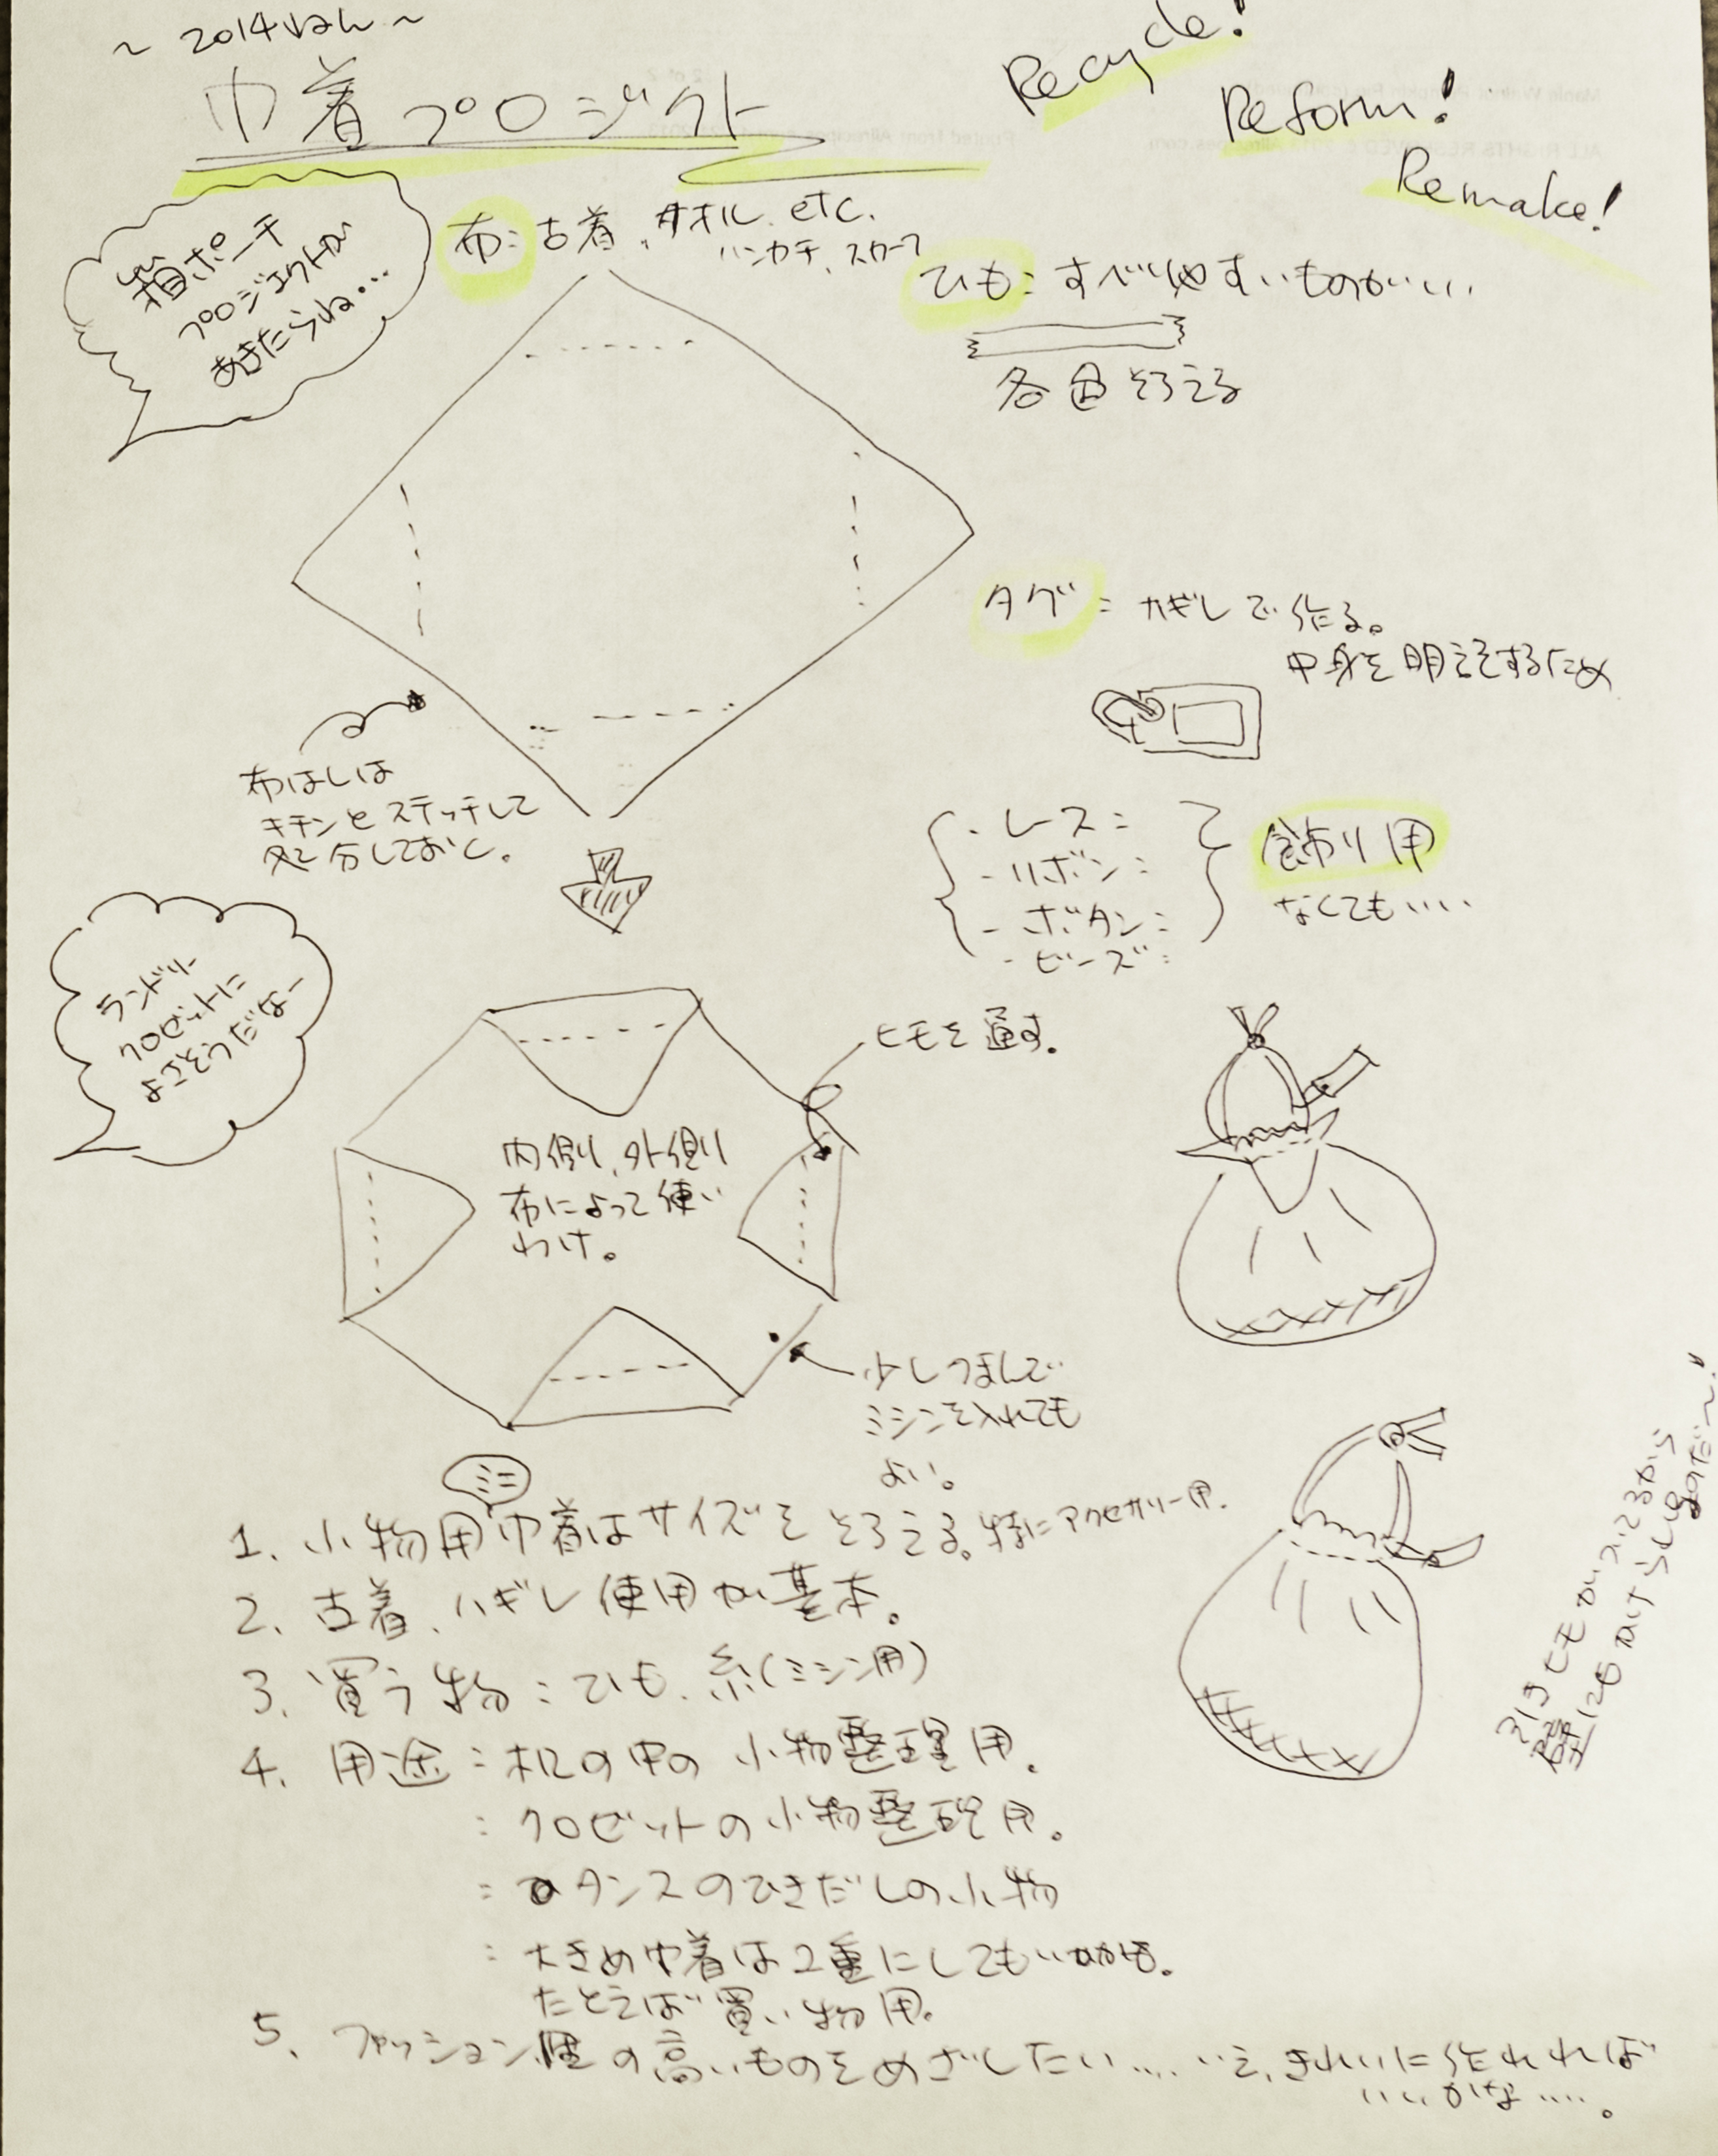 ~ 2014ねん ~
巾着プロジクト
Recycle!
Reform!
Remake!
箱ポーチ
プロジェクトが
あきたらね...
布: 古着、タオル、etc.
ハンカチ、スカーフ
ひも: すべりやすいものがいい
各色そろえる
タグ: カギしで作る。
中身を明記するため
布はしは
キチンとステッチして
処分しておく。
{ - レース:
- リボン:
- ボタン:
- ビーズ:
} 飾り用
なくても....
ランドリー
クロゼットに
よさそうだなー
ヒモを通す。
内側、外側
布によって使い
わけ。
少しつまんで
ミシンを入れても
よい。
ミニ
1. 小物用巾着はサイズをそろえる。特にアクセサリー用.
2. 古着、ハギレ使用が基本。
3. 買う物: ひも、糸(ミシン用)
4. 用途: 机の中の小物整理用.
: クロゼットの小物整理用。
: タンスのひきだしの小物
: 大きめ巾着は2重にしてもいいかも。
たとえば買い物用.
5. ファッション性の高いものをめざしたい.... いえ、きれいに作れれば
いいかな.....。
引きヒモがついてるから
壁にもかけられるのだ~!